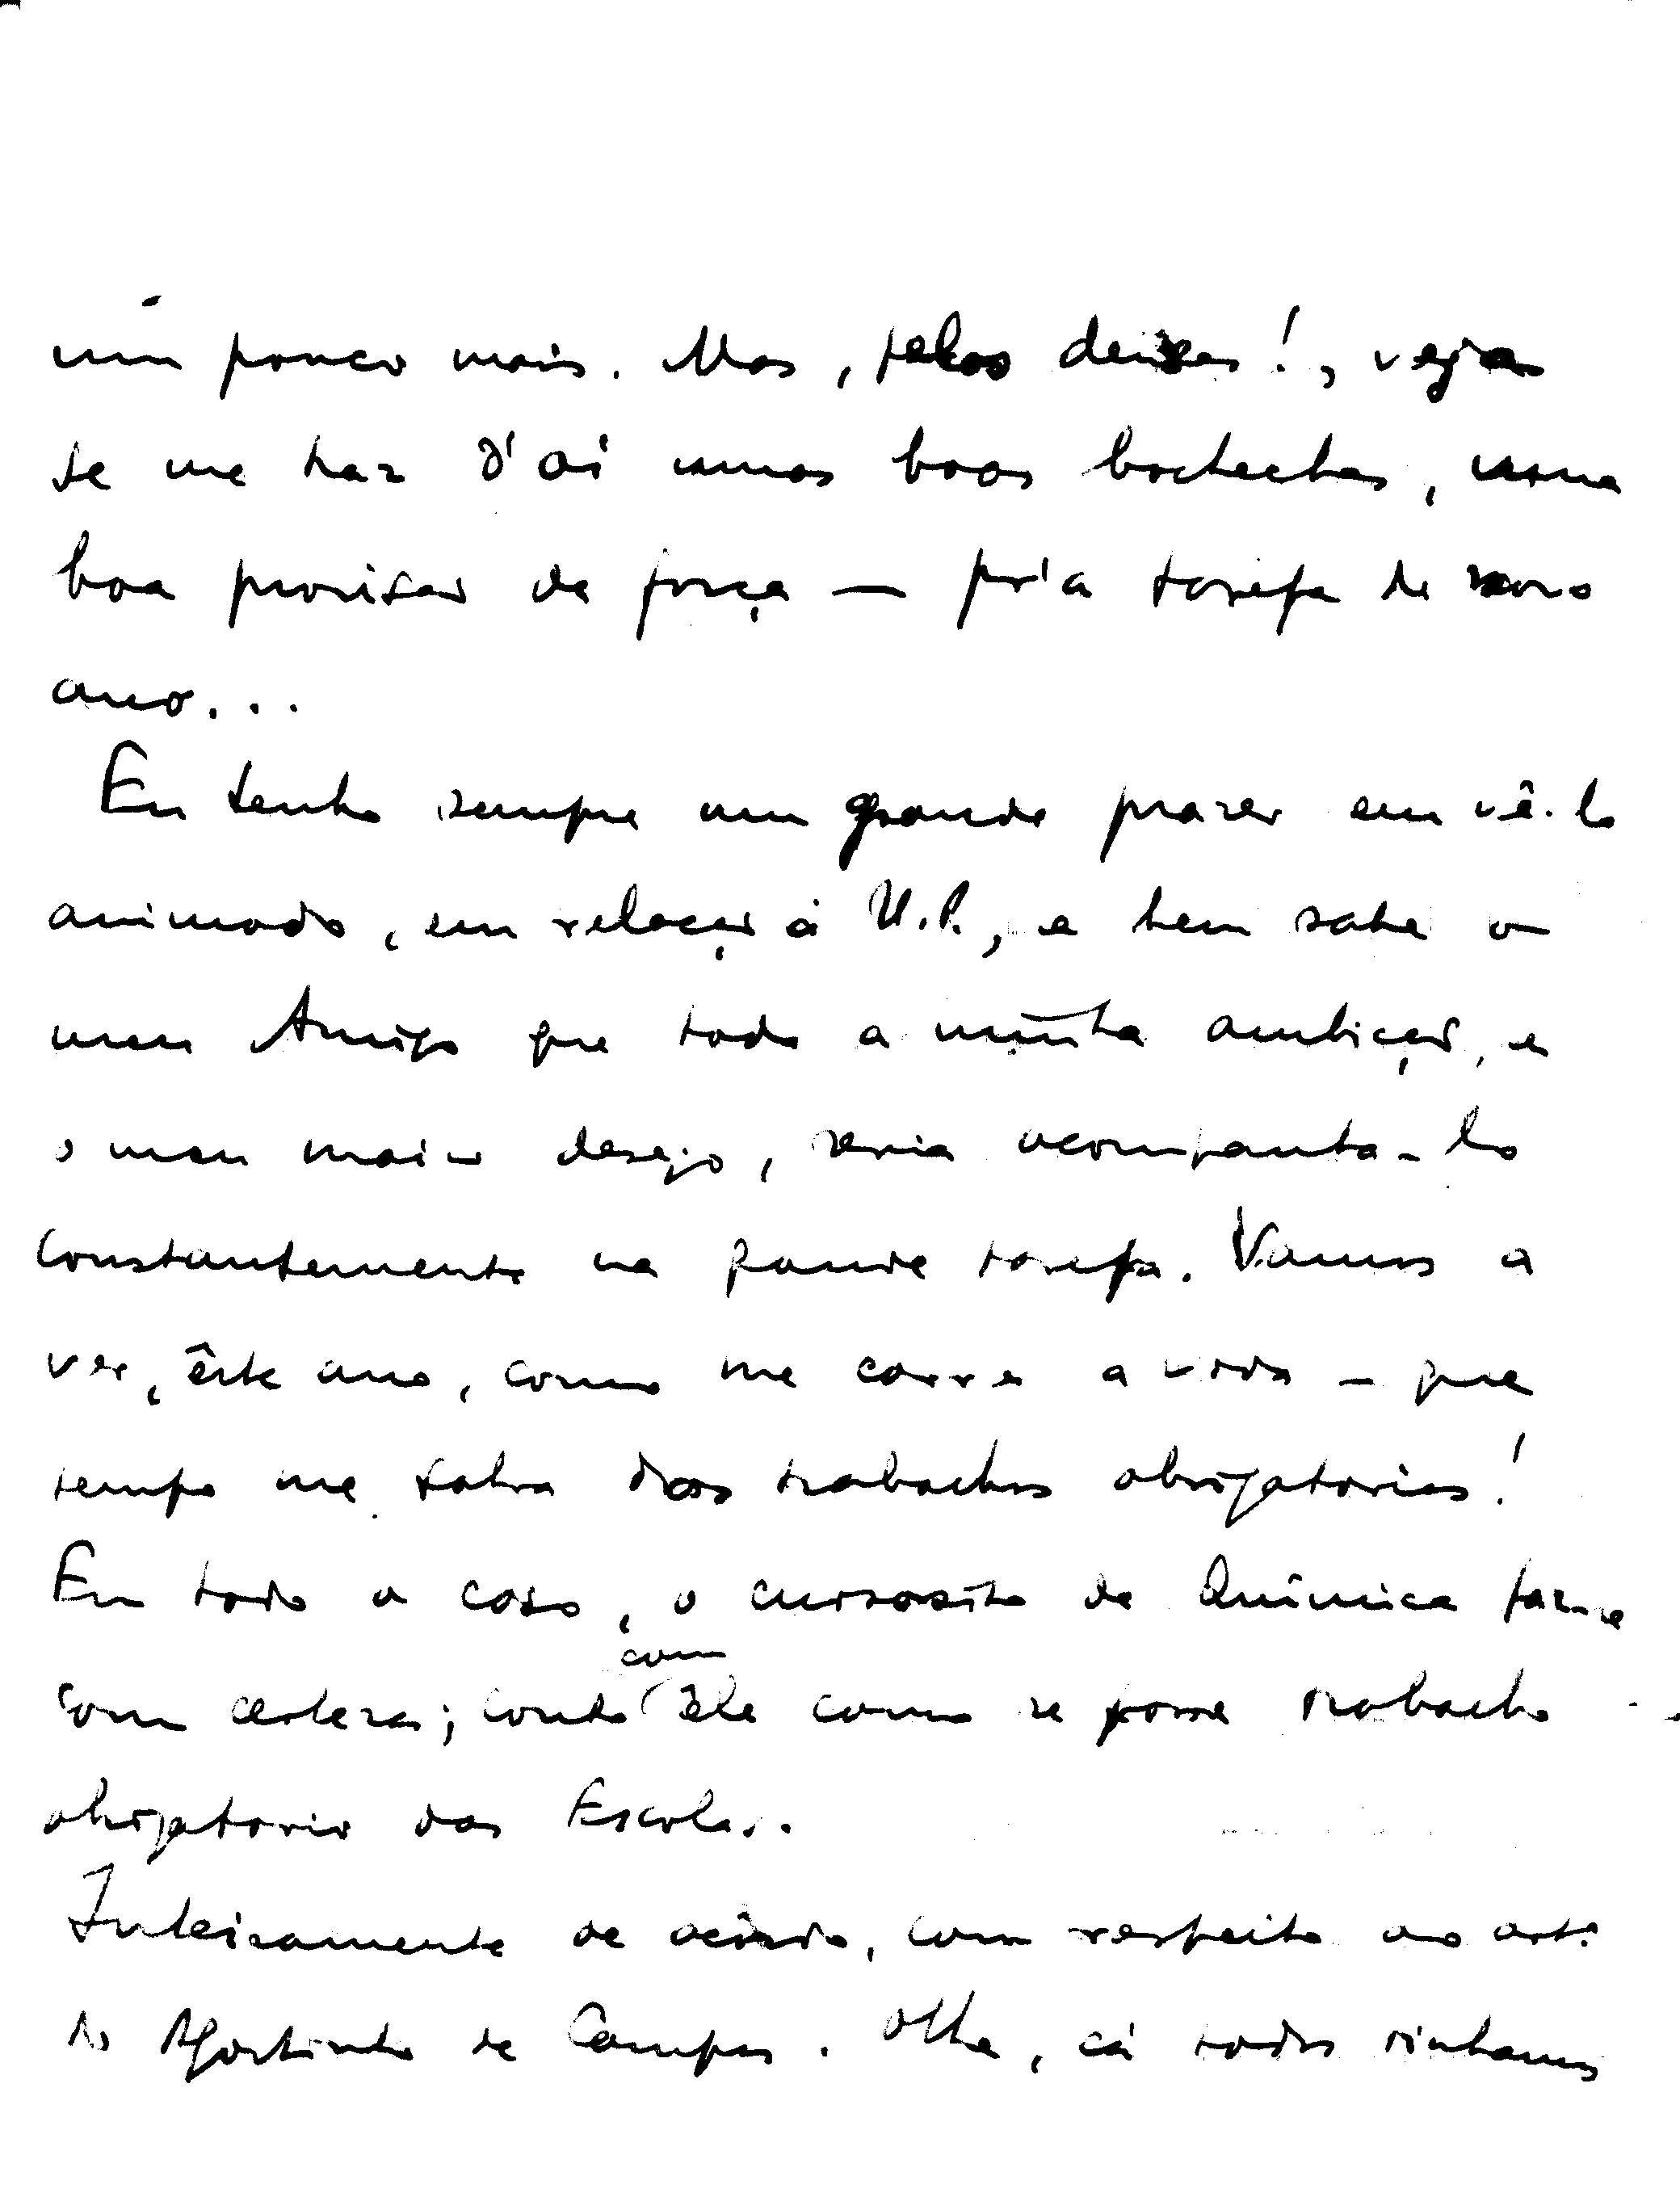 um pouco mais. Mas, pelos deuses!, veja
se me traz d'aí umas boas bochechas, uma
boa provisão de força — pr'a tarefa de novo
ano...
Eu tenho sempre um grande prazer em vê-lo
animado, em relação à U.P., e bem sabe o
meu Amigo que toda a minha ambição, e
o meu maior desejo, seria acompanha-lo
constantemente na grande tarefa. Vamos a
ver, êste ano, como me corre a vida — que
tempo me sobra dos trabalhos obrigatorios!
Em todo o caso, o cursosito de Química faz-se
com certeza; conto com êle como se fosse trabalho
obrigatorio das Escolas.
Inteiramente de acôrdo, com respeito ao art.
do Agostinho de Campos. Olhe, cá todos tinhamos